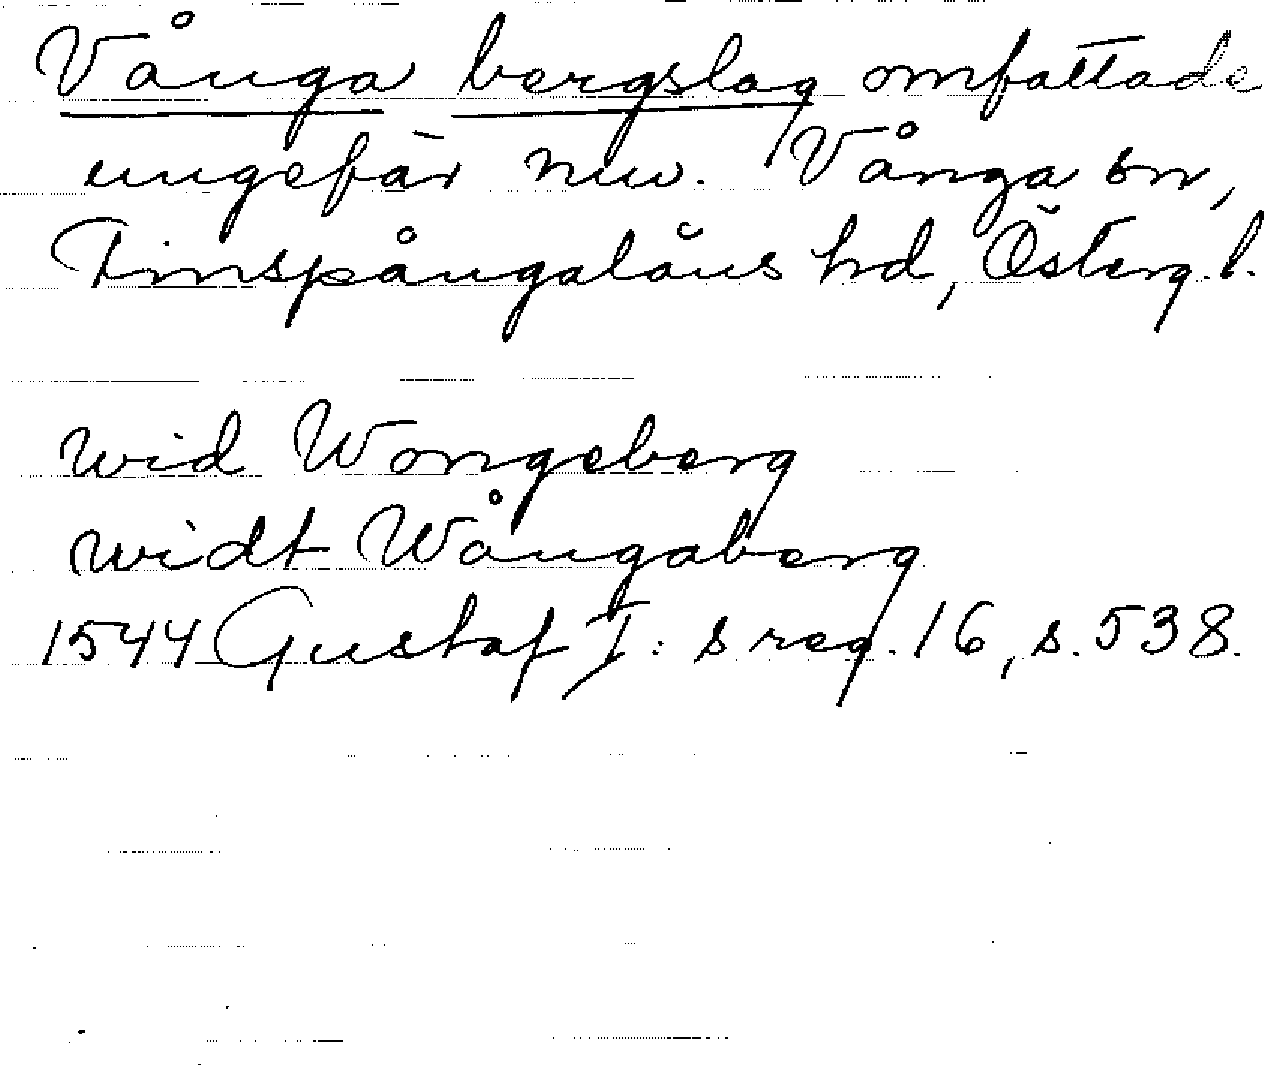 Vånga bergslag omfattade
ungefär nuv. Vånga sn,
Finspångaläns hd, Österg. l.
wid Wongeberg
widt Wångaberg
1544 Gustaf I: s reg. 16, s. 538.